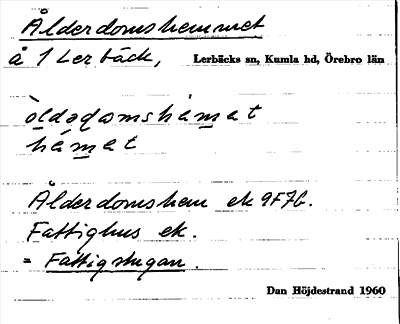 Ålderdomshemmet
å 1 Lerbäck, Lerbäcks sn, Kumla hd, Örebro län
hämat
Ålderdomshem ek 9F7b.
Fattighus ek.
= Fattigstugan.
Dan Höjdestrand 1960